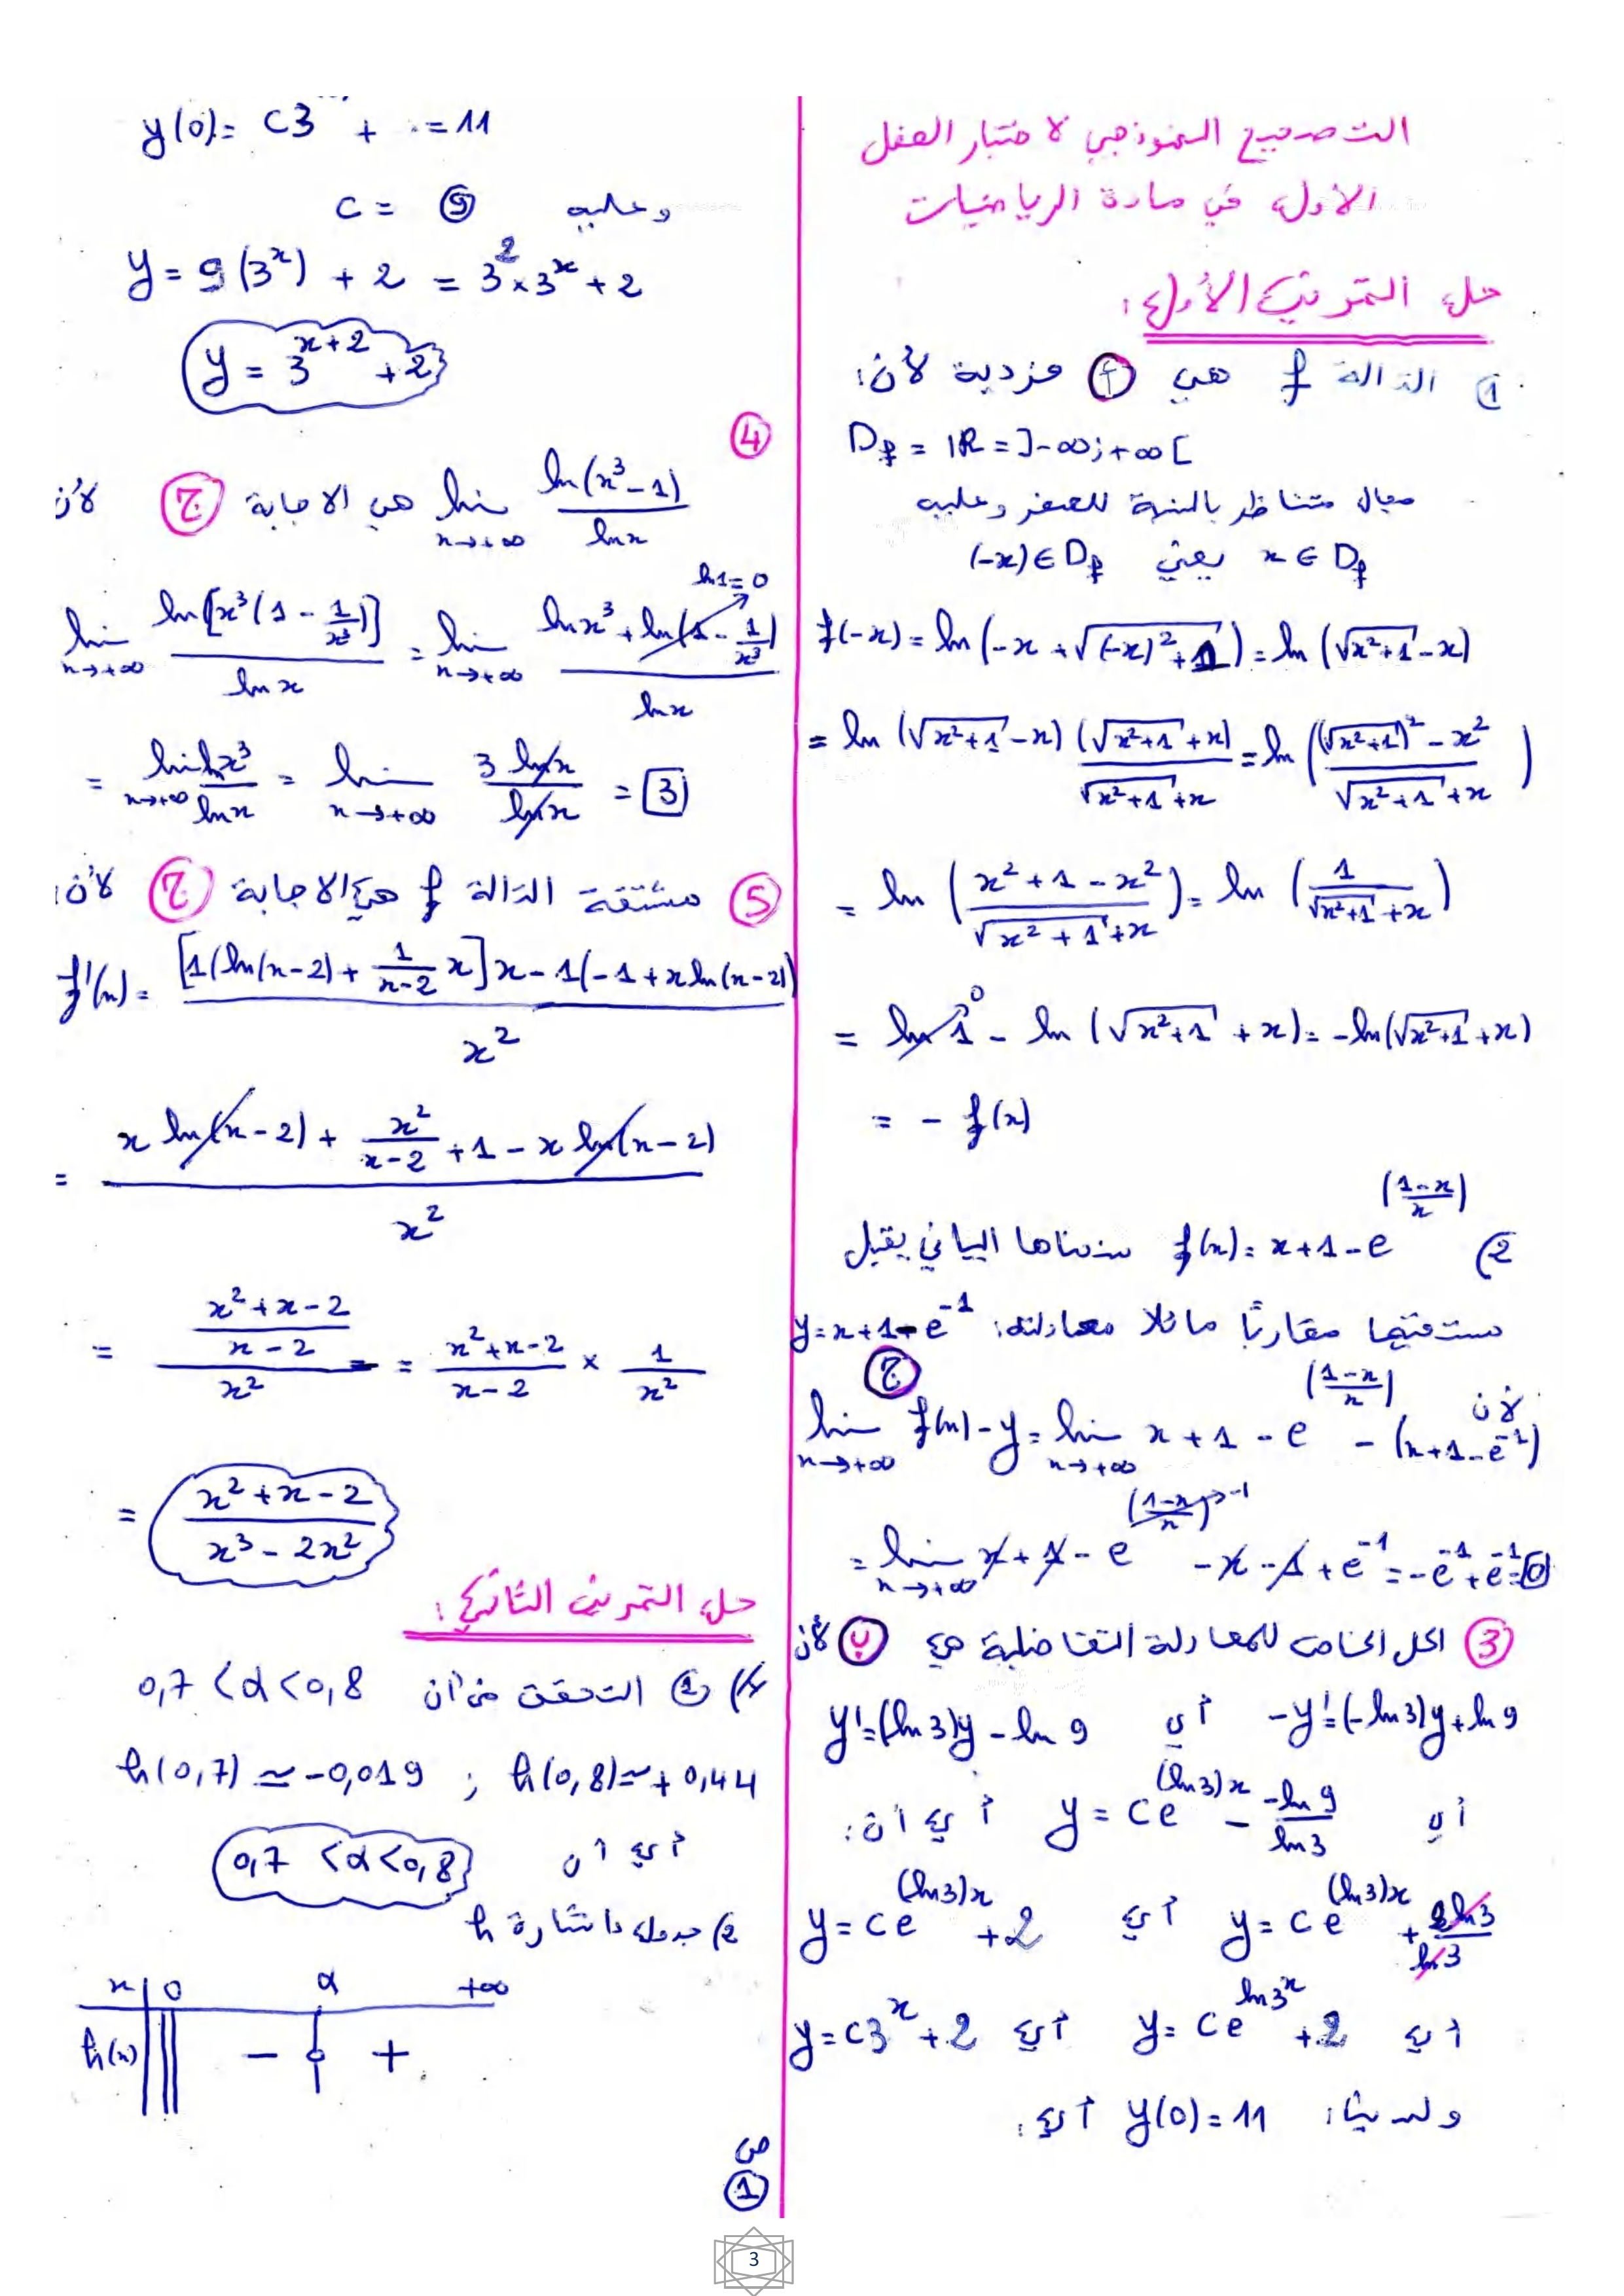 التصحيح النموذجي لاختبار الفصل
الأول في مادة الرياضيات
حل التمرين الأول:
1) الدالة f هي (أ) فردية لأن:
D_f = IR = ]-∞;+∞[
مجال متناظر بالنسبة للصفر وعليه
x ∈ D_f يعني (-x) ∈ D_f
f(-x) = ln(-x + √((-x)²+1)) = ln(√(x²+1) - x)
= ln (√(x²+1) - x) (√(x²+1) + x) / (√(x²+1) + x) = ln( ((√(x²+1))² - x²) / (√(x²+1) + x) )
= ln( (x²+1-x²) / (√(x²+1) + x) ) = ln( 1 / (√(x²+1) + x) )
= ln 1 ⁰ - ln(√(x²+1) + x) = -ln(√(x²+1) + x)
= - f(x)
2) f(x) = x+1-e^((1-x)/x) منحناها البياني يقبل
مستقيما مقاربًا مائلا معادلته: y = x+1-e^-1
(ج)
لأن lim x→+∞ f(x)-y = lim x→+∞ x+1-e^((1-x)/x) - (x+1-e^-1)
= lim x→+∞ x+1-e^((1-x)/x)→-1 -x-1+e^-1 = -e^-1+e^-1 = 0
(3) الحل الخاص للمعادلة التفاضلية هي (ب) لأن
-y' = (-ln3)y + ln9 أي y' = (ln3)y - ln9
أي y = Ce^((ln3)x) - (-ln9)/(ln3) أي أن:
y = Ce^((ln3)x) + 2ln3/ln3 أي y = Ce^((ln3)x) + 2
أي y = Ce^(ln3^x) + 2 أي y = C3^x + 2
ولدينا: y(0) = 11 أي:
y(0) = C3 + = 11
وعليه C = 9
y = 9(3^x) + 2 = 3² × 3^x + 2
y = 3^(x+2) + 2
(4)
lim x→+∞ ln(x³-1)/ln x هي الاجابة (ج) لأن
lim x→+∞ ln[x³(1 - 1/x³)]/ln x = lim x→+∞ (ln x³ + ln(1 - 1/x³))/ln x ln1=0
= lim x→+∞ ln x³/ln x = lim x→+∞ 3 ln x/ln x = 3
(5) مشتقة الدالة f هي الاجابة (ج) لأن:
f'(x) = [1(ln(x-2) + 1/(x-2) x] x - 1(-1 + x ln(x-2)) / x²
= (x ln(x-2) + x²/(x-2) + 1 - x ln(x-2)) / x²
= ((x²+x-2)/(x-2)) / x² = (x²+x-2)/(x-2) × 1/x²
= (x²+x-2)/(x³-2x²)
حل التمرين الثاني:
(1) التحقق من أن 0,7 < α < 0,8
h(0,7) ≃ -0,019 ; h(0,8) ≃ +0,44
أي أن 0,7 < α < 0,8
2) جدول اشارة h
x 0 α +∞
h(x) - 0 +
ص
1
3